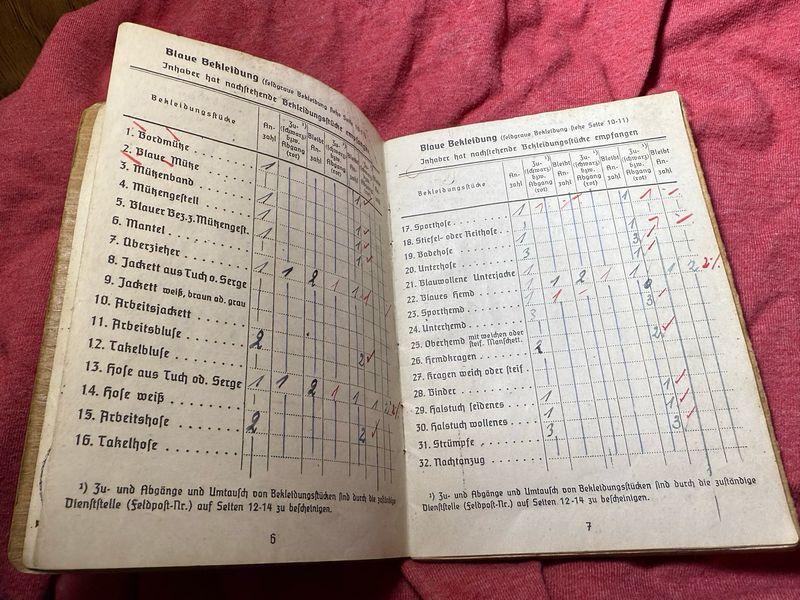 Blaue Bekleidung (feldgraue Bekleidung siehe Seite 10-11)
Inhaber hat nachstehende Bekleidungsstücke empfangen
Bekleidungsstücke An-zahl Zu-¹) (schwarz) bzw. Abgang (rot) Bleibt An-zahl Zu-¹) (schwarz) bzw. Abgang (rot) Bleibt An-zahl
1. Bordmütze
2. Blaue Mütze 1
3. Mützenband
4. Mützengestell 1
5. Blauer Bez. z. Mützengest.
6. Mantel
7. Überzieher
8. Jackett aus Tuch o. Serge 1 1 2 1 1
9. Jackett weiß, braun od. grau
10. Arbeitsjackett
11. Arbeitsbluse 2
12. Takelbluse 2
13. Hose aus Tuch od. Serge 1 1 2 1 1 1 2
14. Hose weiß
15. Arbeitshose 2 2
16. Takelhose
¹) Zu- und Abgänge und Umtausch von Bekleidungsstücken sind durch die zuständige
Dienststelle (Feldpost-Nr.) auf Seiten 12-14 zu bescheinigen.
6
Blaue Bekleidung (feldgraue Bekleidung siehe Seite 10-11)
Inhaber hat nachstehende Bekleidungsstücke empfangen
Bekleidungsstücke An-zahl Zu-¹) (schwarz) bzw. Abgang (rot) Bleibt An-zahl Zu-¹) (schwarz) bzw. Abgang (rot) Bleibt An-zahl
17. Sporthose 1 1 1 1
18. Stiefel- oder Reithose
19. Badehose 1 3
20. Unterhose 3 1
21. Blauwollene Unterjacke 1 1 2 1 1 1 2
22. Blaues Hemd 1 1
23. Sporthemd 3
24. Unterhemd 3
25. Oberhemd mit weichen oder steif. Manschett. 2
26. Hemdkragen 2
27. Kragen weich oder steif
28. Binder 1
29. Halstuch seidenes 1 1
30. Halstuch wollenes 1 3
31. Strümpfe 3
32. Nachtanzug
¹) Zu- und Abgänge und Umtausch von Bekleidungsstücken sind durch die zuständige
Dienststelle (Feldpost-Nr.) auf Seiten 12-14 zu bescheinigen.
7